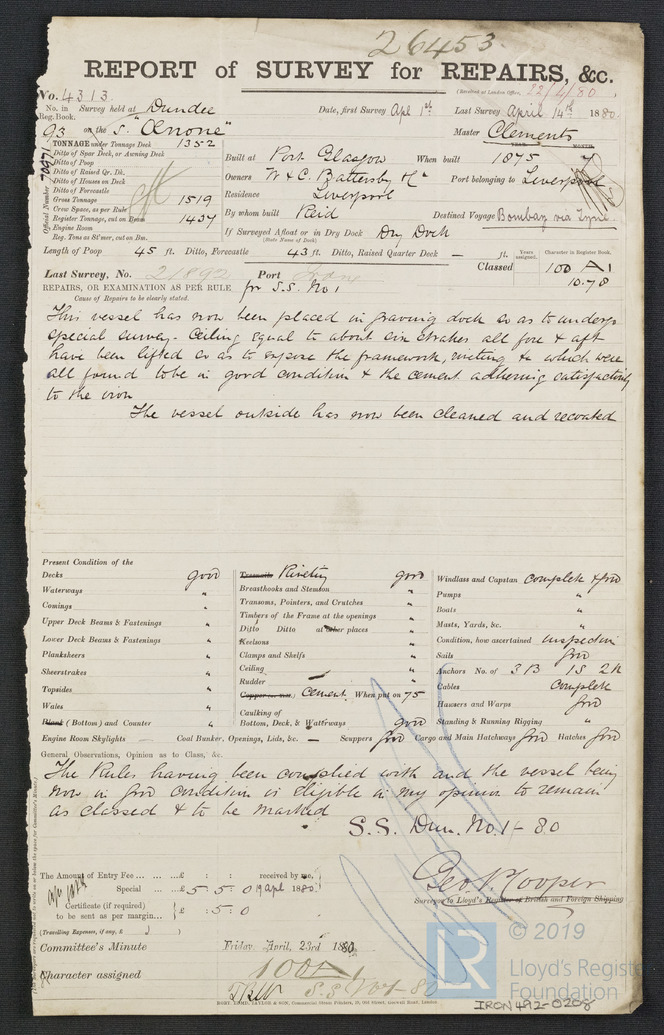 26453
REPORT of SURVEY for REPAIRS, &c.
(Received at London Office, 22/4/80)
No. 4313
No. in Reg. Book. Survey held at Dundee Date, first Survey Apl 1st Last Survey April 14th 1880
93 on the S. "Œnone" Master Clements
TONNAGE under Tonnage Deck 1352
Ditto of Spar Deck, or Awning Deck
Ditto of Poop
Ditto of Raised Qr. Dk.
Ditto of Houses on Deck
Ditto of Forecastle
Gross Tonnage 1519
Crew Space, as per Rule
Register Tonnage, cut on Beam 1437
Engine Room
Reg. Tons as St'mer, cut on Bm.
Official Number 70971
Built at Port Glasgow When built YEAR. 1875 MONTH. 7
Owners W & C. Battersby & Co Port belonging to Liverpool
Residence Liverpool
By whom built Reid Destined Voyage Bombay via Tyne
If Surveyed Afloat or in Dry Dock Dry Dock
(State Name of Dock)
Length of Poop 45 ft. Ditto, Forecastle 43 ft. Ditto, Raised Quarter Deck — ft.
Years assigned. Character in Register Book.
Last Survey, No. 21892 Port Classed 100 A1
10.78
REPAIRS, OR EXAMINATION AS PER RULE for S.S. No 1
Cause of Repairs to be clearly stated.
This vessel has now been placed in graving dock so as to undergo
special survey - Ceiling equal to about six strakes all fore & aft
have been lifted so as to expose the framework, riveting & which were
all found to be in good condition & the cement adhering satisfactorily
to the iron
The vessel outside has now been cleaned and recoated
Present Condition of the
Decks good
Waterways "
Comings "
Upper Deck Beams & Fastenings "
Lower Deck Beams & Fastenings "
Planksheers "
Sheerstrakes "
Topsides "
Wales "
Plank (Bottom) and Counter "
Treenails Riveting good
Breasthooks and Stemson "
Transoms, Pointers, and Crutches "
Timbers of the Frame at the openings "
Ditto Ditto at other places "
Keelsons "
Clamps and Shelfs "
Ceiling "
Rudder "
Copper Cement When put on 75
Caulking of
Bottom, Deck, & Waterways good
Windlass and Capstan complete & good
Pumps "
Boats "
Masts, Yards, &c. "
Condition, how ascertained inspection
Sails good
Anchors No. of 3 B 1 S 2 K
Cables Complete
Hawsers and Warps good
Standing & Running Rigging "
Engine Room Skylights — Coal Bunker, Openings, Lids, &c. — Scuppers good Cargo and Main Hatchways good Hatches good
General Observations, Opinion as to Class, &c.
The Rules having been complied with and the vessel being
now in good condition is eligible in my opinion to remain
as classed & to be marked
S.S. Dun. No. 1 - 80
The Amount of Entry Fee ... £ : : received by me,
Special ... £ 5 : 5 : 0 19 Apl 1880
Certificate (if required) to be sent as per margin... £ : 5 : 0
(Travelling Expenses, if any, £ )
Geo. N. Cooper
Surveyor to Lloyd's Register of British and Foreign Shipping
Committee's Minute Friday, April, 23rd 1880.
Character assigned 100A1
© 2019
Lloyd's Register
Foundation
IRON 492-0208